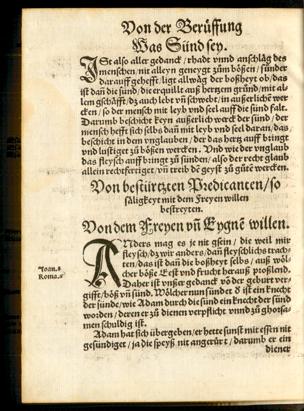 Von der Berüffung
Was Sünd sey.
ISt also aller gedanck / rhadt vnnd anschläg des
menschen / nit alleyn geneygt zům bösen / sünder
darauff gehefft / ligt allwäg der boßheyt ob / das
ist dañ die sünd / die erquillt auß hertzem gründ / mit al-
lem gschäfft / dz auch lebt vñ schwebt / in aüßerlichē wer
cken / so der mensch mit leyb vnd seel auff die sünd falt.
Darumb beschicht keyn aüßerlich werck der sünd / der
mensch hefft sich selbs dañ mit leyb vnd seel daran / das
beschicht in dem vnglauben / der das hertz auff bringt
vnd lustiget zů bösen wercken. Vnd wie der vnglaub
das fleysch auff bringt zů sünden / also der recht glaub
allein rechtfertiget / vñ treib dē geyst zů gůtē wercken.
Von bestürtzten Predicanten / so
säligkeyt mit dem Freyen willen
bestreyten.
Von dem Freyen vñ Eygnē willen.
ANders mag es je nit gsein / die weil mir
fleysch / dz wir anders dañ fleyschlichs trach-
ten / das ist dañ die boßheyt selbs / auß wöl-
cher böße Est vnd frucht herauß proßlend.
Daher ist vnser gedanck vō der geburt ver-
gifft / böß vñ sünd. Wölcher nun sündet ð ist ein knecht
der sünde / wie Adam durch die sünd ein knecht der sünd
worden / deren er zů dienen verpflicht vnnd zů ghorsa-
men schuldig ist.
Adam hat sich übergeben / er hette sunst mit essen nit
gesündiget / ja die speyß nit angerürt / darumb er ein
diener
Ioan.8
Roma.